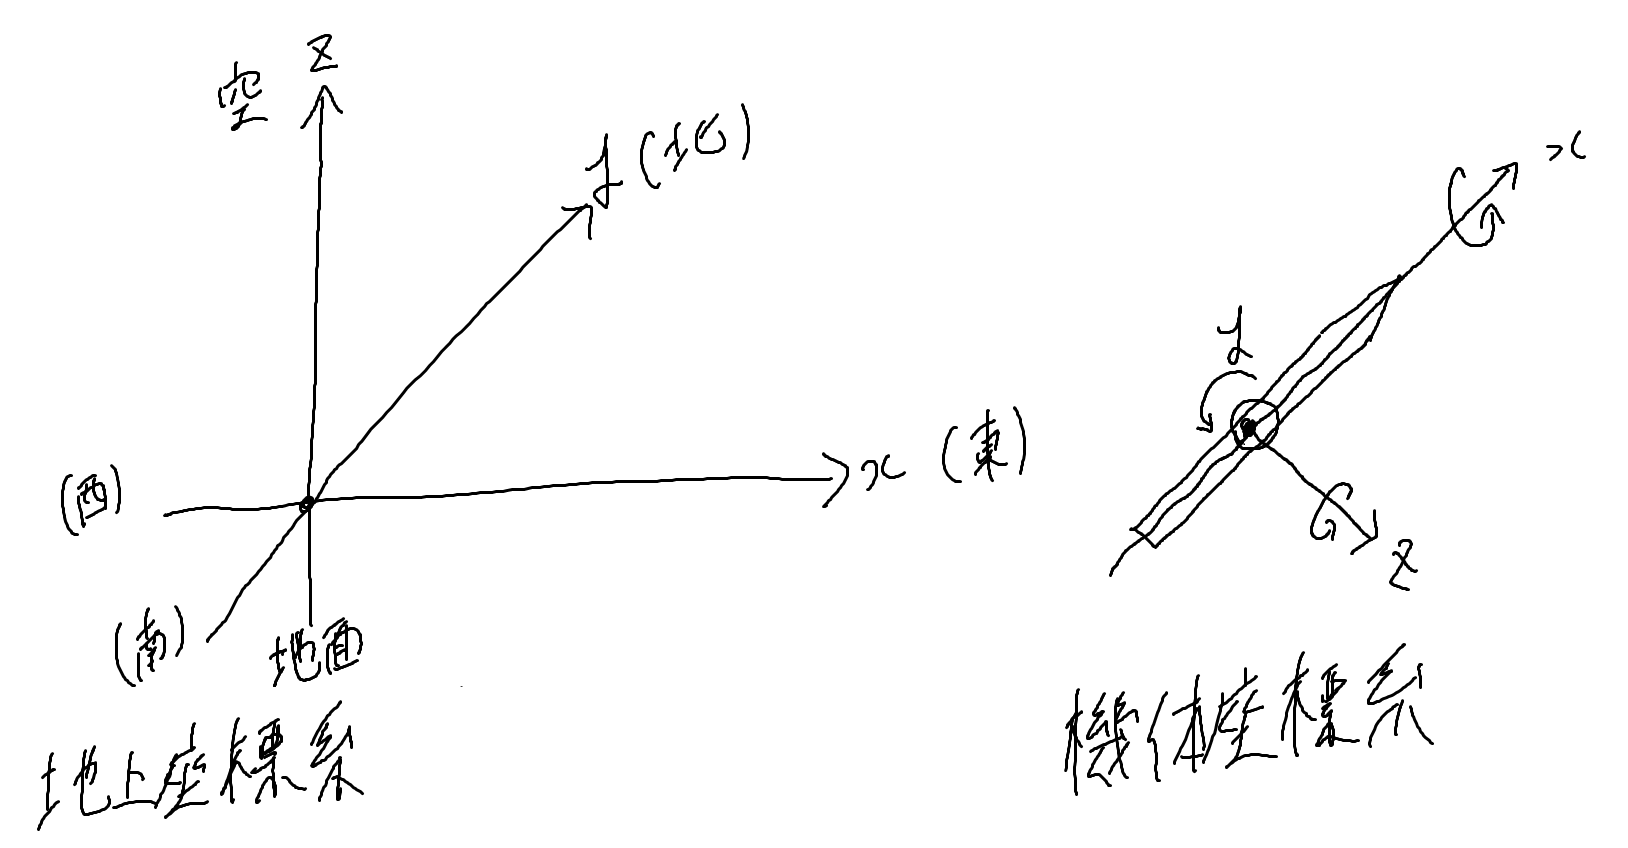 z
空
y (北)
x (東)
(西)
(南)
地面
地上座標系
x
y
z
機体座標系